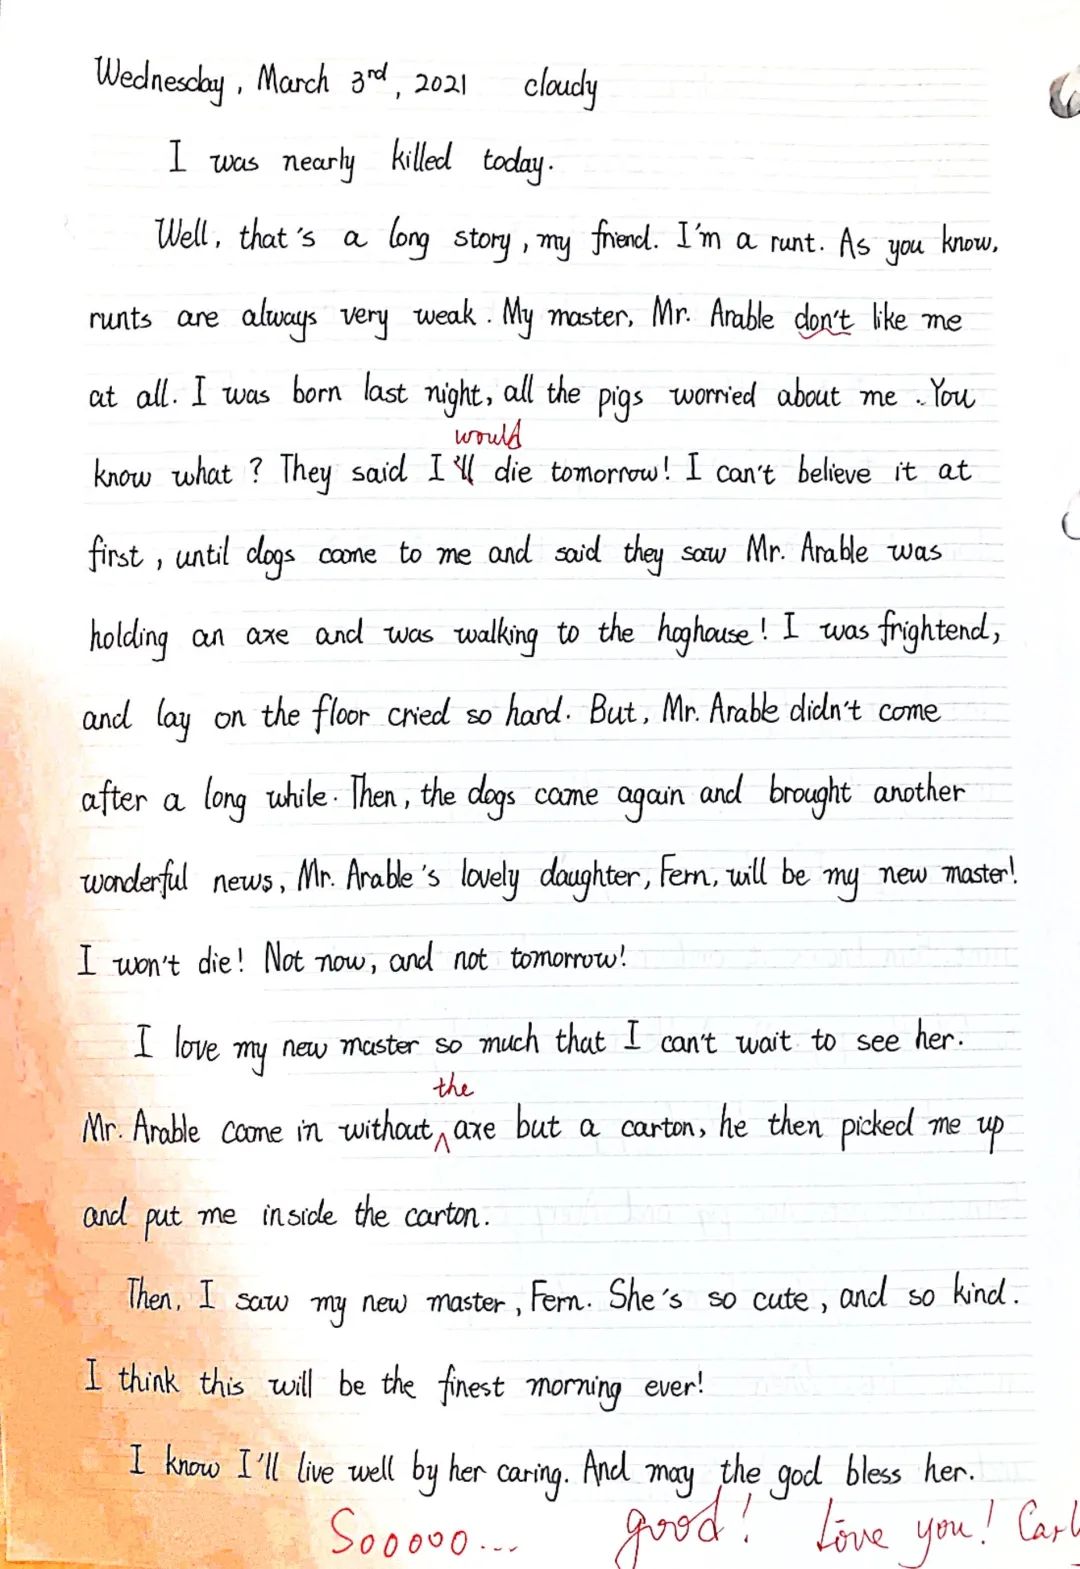 Wednesday, March 3rd, 2021 cloudy
I was nearly killed today.
Well, that's a long story, my friend. I'm a runt. As you know,
runts are always very weak. My master, Mr. Arable don't like me
at all. I was born last night, all the pigs worried about me. You
would
know what? They said I'll die tomorrow! I can't believe it at
first, until dogs came to me and said they saw Mr. Arable was
holding an axe and was walking to the hoghouse! I was frightend,
and lay on the floor cried so hard. But, Mr. Arable didn't come
after a long while. Then, the dogs came again and brought another
wonderful news, Mr. Arable's lovely daughter, Fern, will be my new master!
I won't die! Not now, and not tomorrow!
I love my new master so much that I can't wait to see her.
the
Mr. Arable came in without axe but a carton, he then picked me up
and put me inside the carton.
Then, I saw my new master, Fern. She's so cute, and so kind.
I think this will be the finest morning ever!
I know I'll live well by her caring. And may the god bless her.
Sooooo... good! Love you!